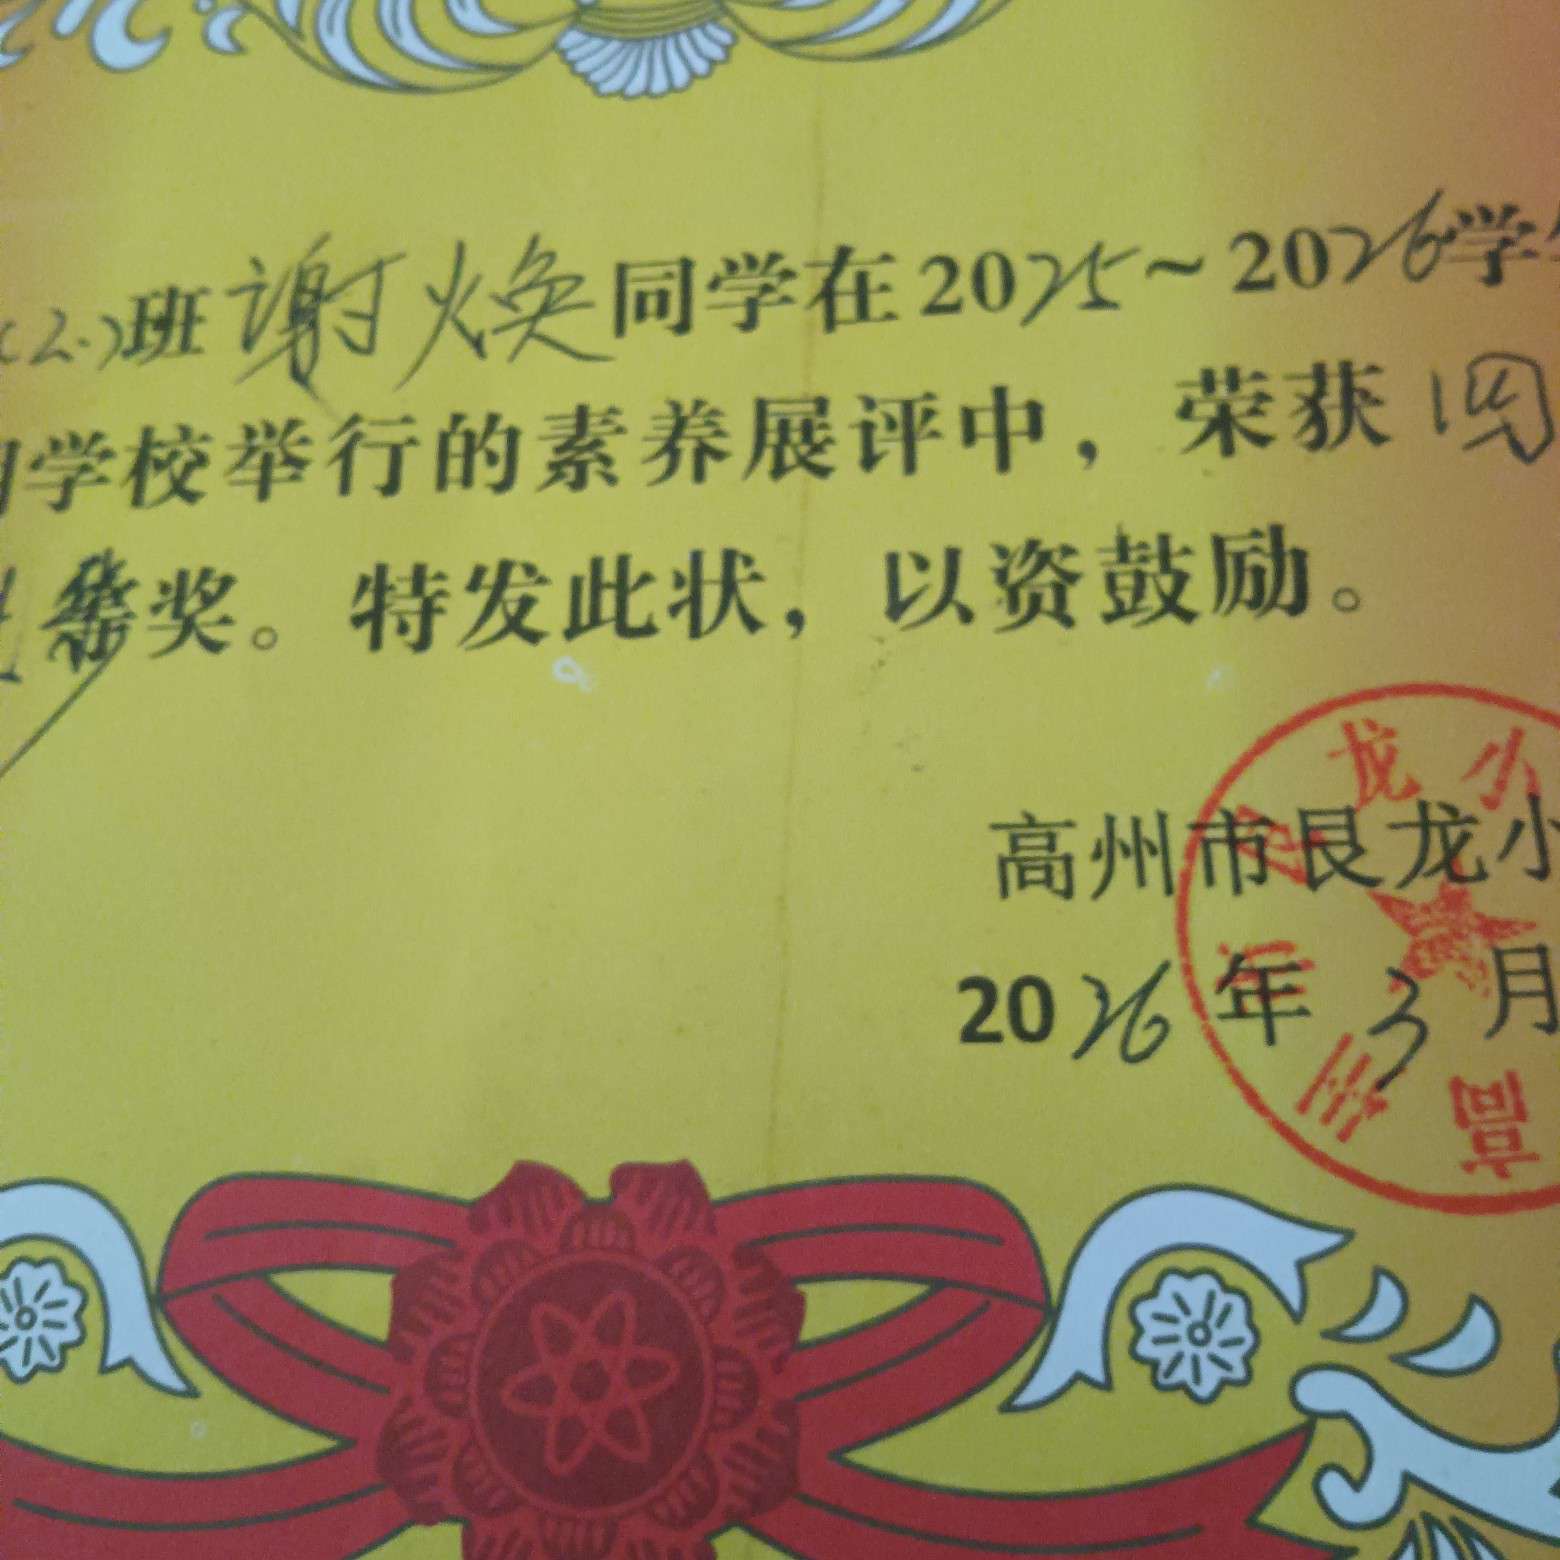 (2.)班谢焕同学在2025~2026学
学校举行的素养展评中，荣获
奖。特发此状，以资鼓励。
龙小
高州市艮龙小
2026年3月
高州